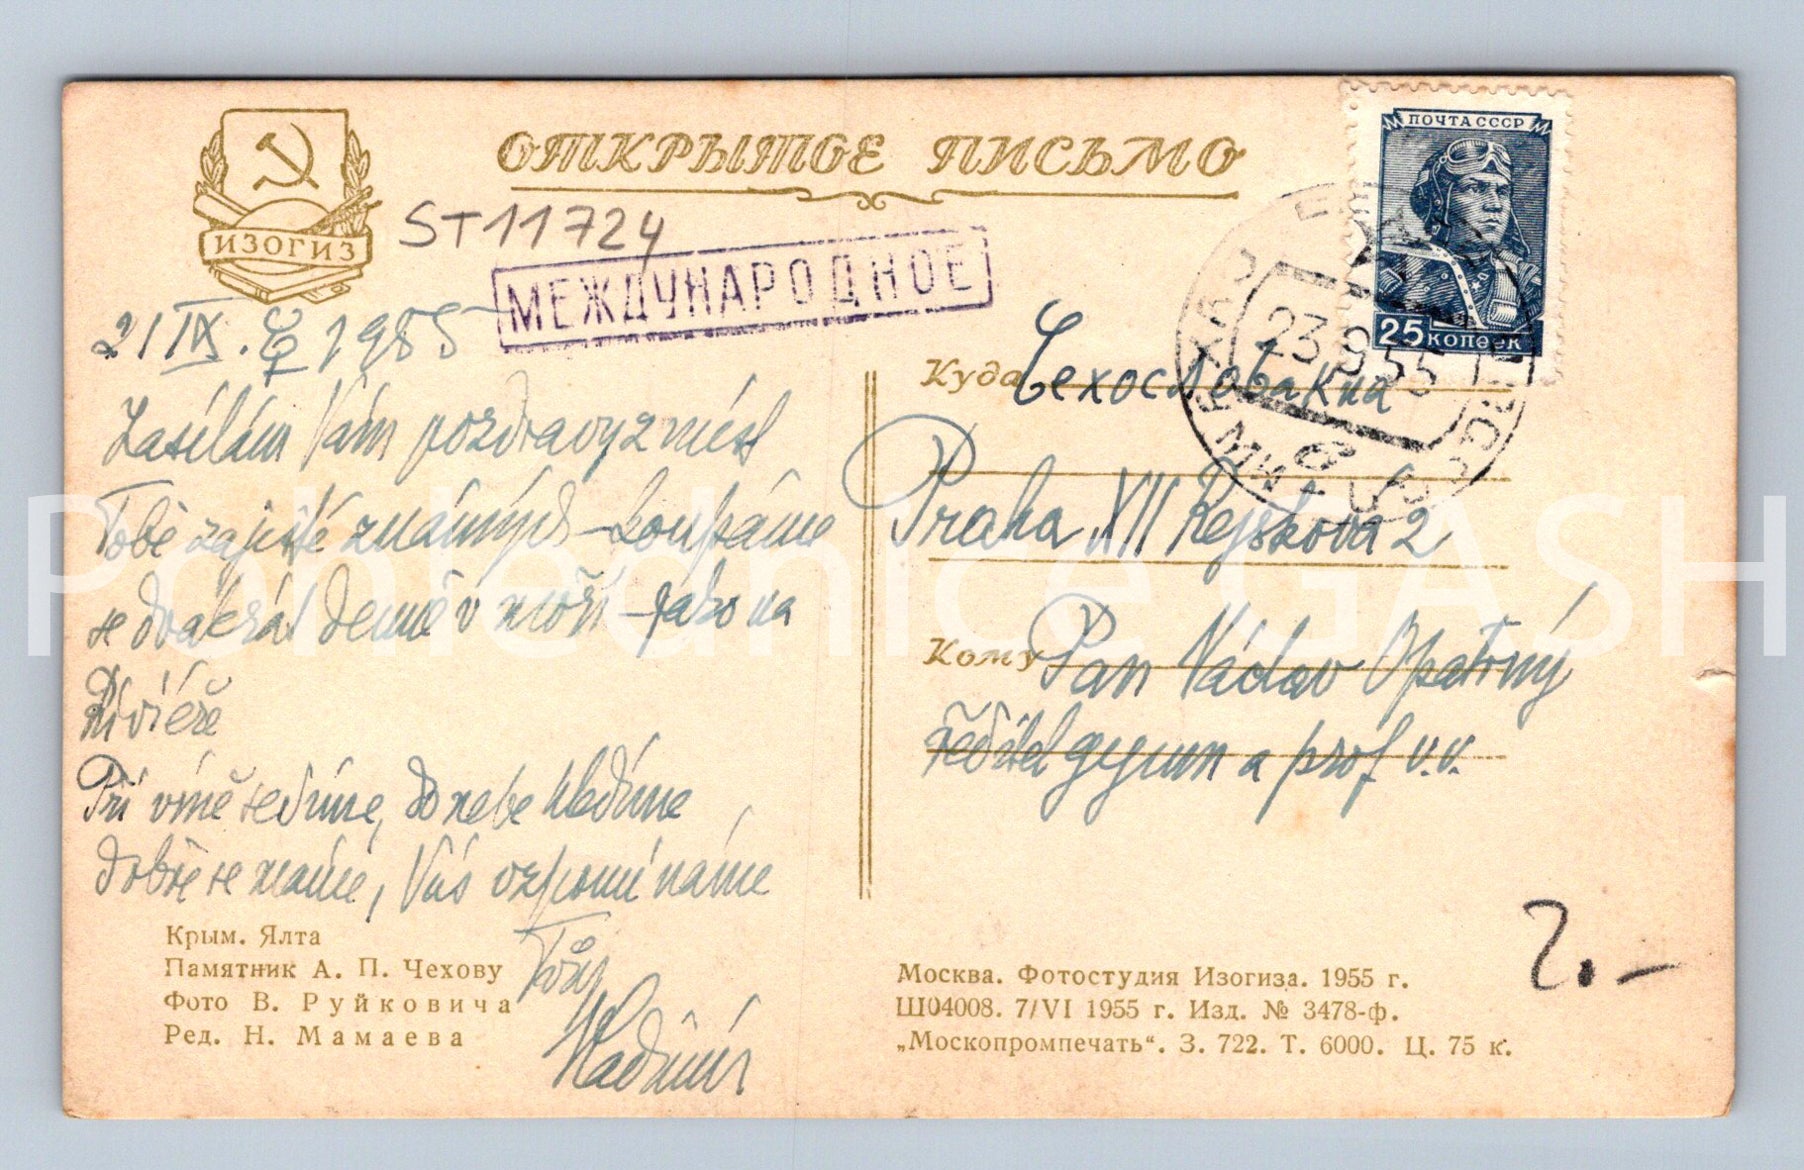 ОТКРЫТОЕ ПИСЬМО
ИЗОГИЗ
ST11724
МЕЖДУНАРОДНОЕ
ПОЧТА СССР
25 КОПЕЕК
23 9 55
21 IX. 1955
Zasílám Vám pozdravy z míst
Tobě zajisté známých – koupáme
se dvakrát denně v moři – jako na
Rivieře
Při víně sedíme, do nebe hledíme
dobře se máme, Vás vzpomínáme
Tvůj
Vladimír
Куда Чехословакиа
Praha XII Rejskova 2
Кому Pan Václav Opatrný
ředitel gymn a prof v.v.
Крым. Ялта
Памятник А. П. Чехову
Фото В. Руйковича
Ред. Н. Мамаева
Москва. Фотостудия Изогиза. 1955 г.
Ш04008. 7/VI 1955 г. Изд. № 3478-ф.
„Москопромпечать“. З. 722. Т. 6000. Ц. 75 к.
2.–
Pohlednice GASH